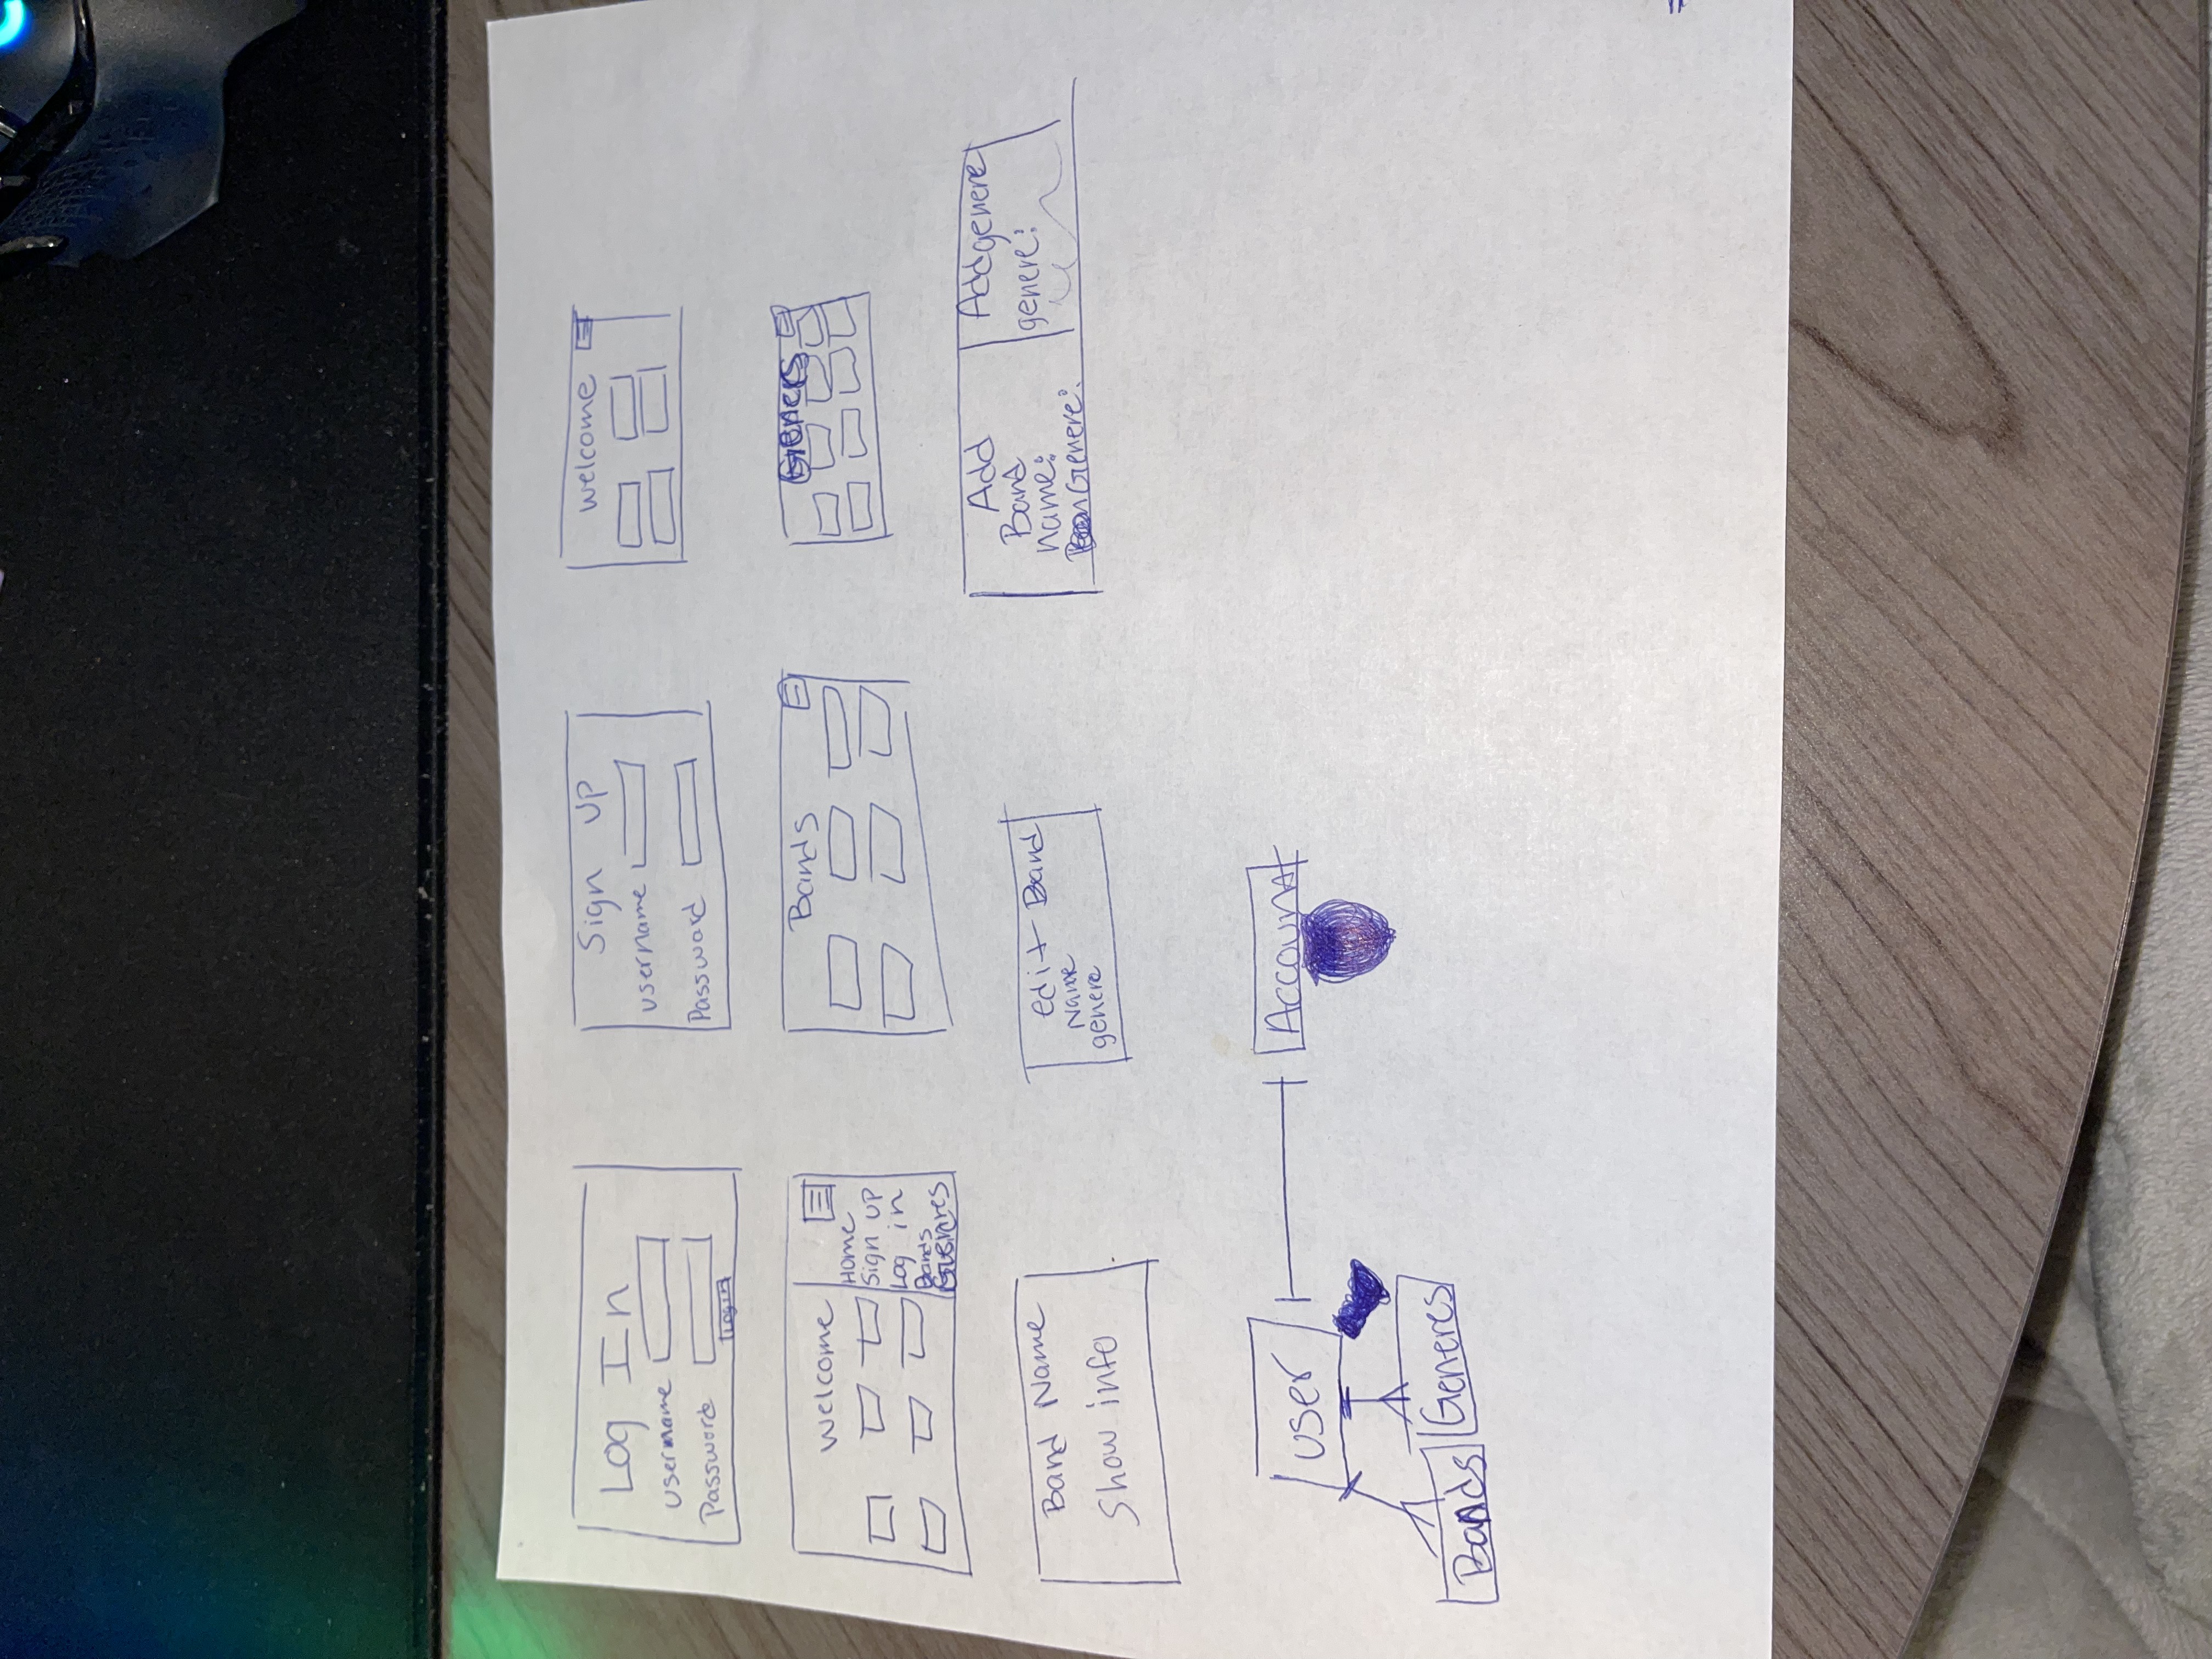 Log In
username
Password
Log in
Sign UP
username
Password
welcome
welcome
Home
Sign up
Log in
Bands
Generes
Bands
Geners
Band Name
Show info
edit Band
Name
genere
Add
Band
name:
Genere:
Add genere
genere:
user
Account
Bands
Generes